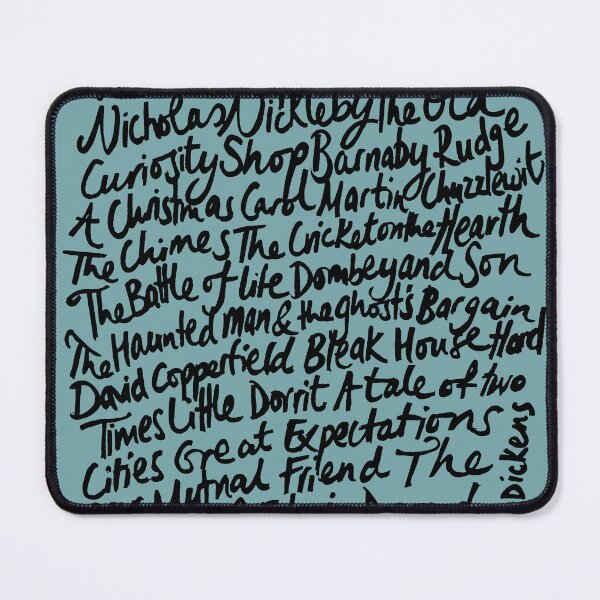 Nicholas Nickleby The Old
Curiosity Shop Barnaby Rudge
A Christmas Carol Martin Chuzzlewit
The Chimes The Cricket on the Hearth
The Battle of Life Dombey and Son
The Haunted man & the ghost's Bargain
David Copperfield Bleak House Hard
Times Little Dorrit A tale of two
Cities Great Expectations
Mutual Friend The
Dickens